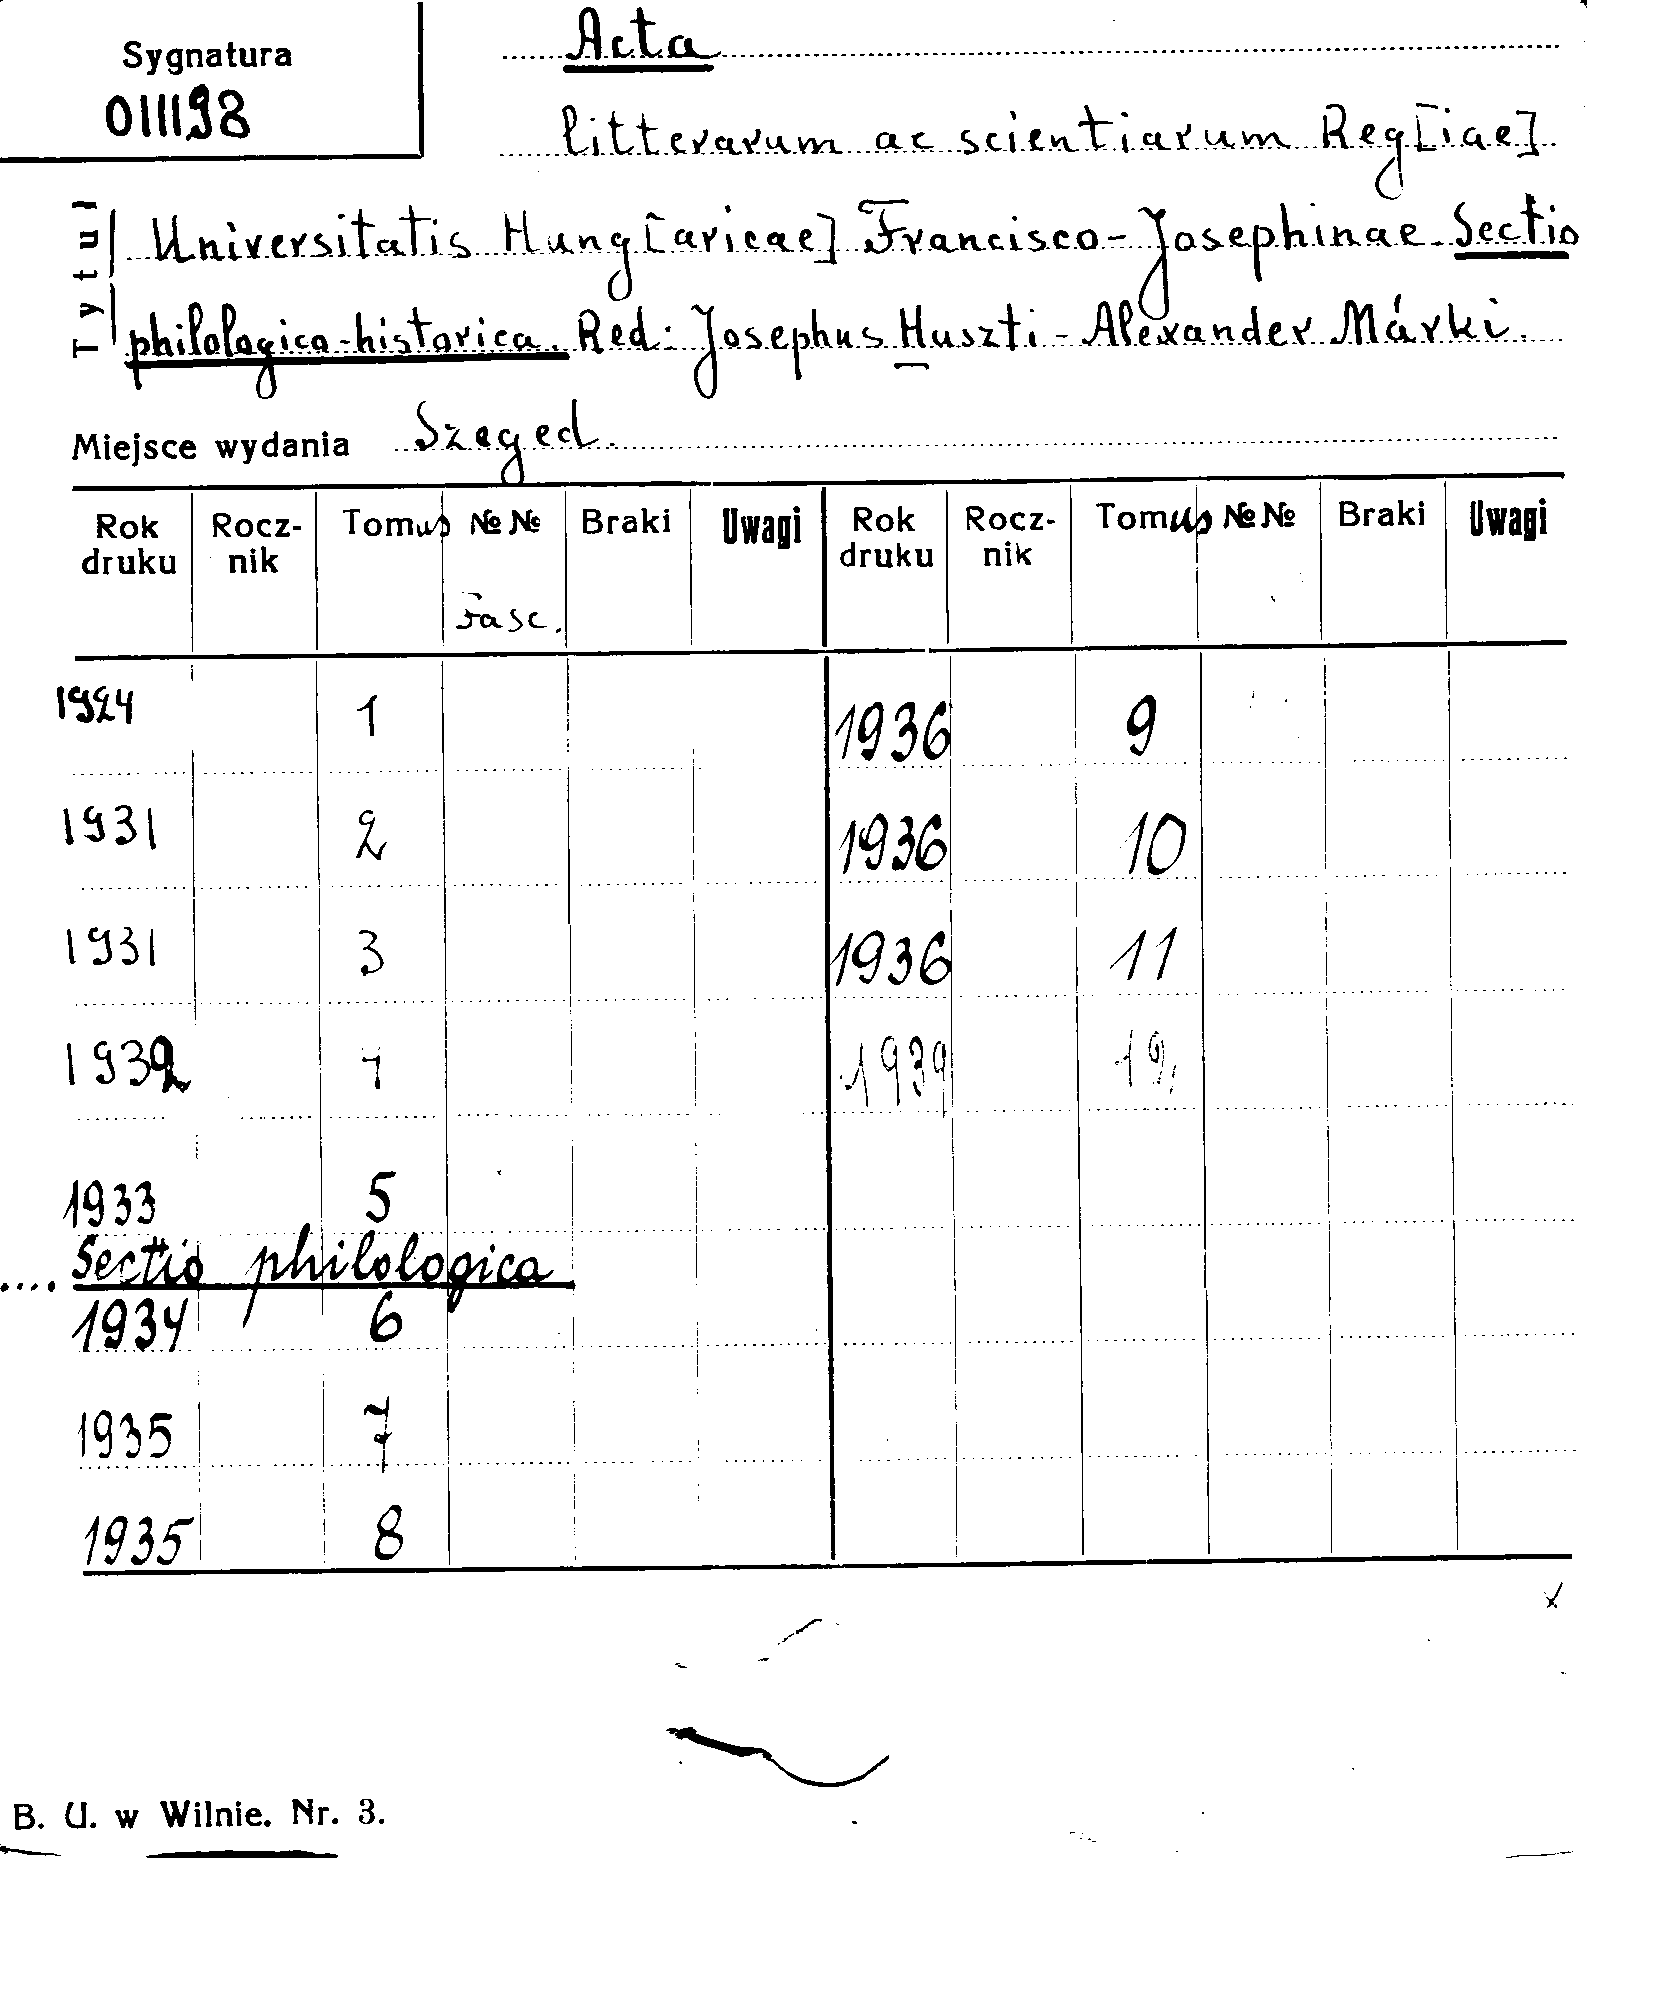 Sygnatura
011198
Acta
litterarum ac scientiarum Reg[iae]
Tytuł
Universitatis Hung[aricae] Francisco-Josephinae. Sectio
philologica-historica. Red: Josephus Huszti - Alexander Márki.
Miejsce wydania Szeged.
Rok druku Rocz-nik Tomus №№ Fasc. Braki Uwagi Rok druku Rocz-nik Tomus №№ Braki Uwagi
1924 1 1936 9
1931 2 1936 10
1931 3 1936 11
1932 4 1939
1933 5
Sectio philologica
1934 6
1935 7
1935 8
B. U. w Wilnie. Nr. 3.